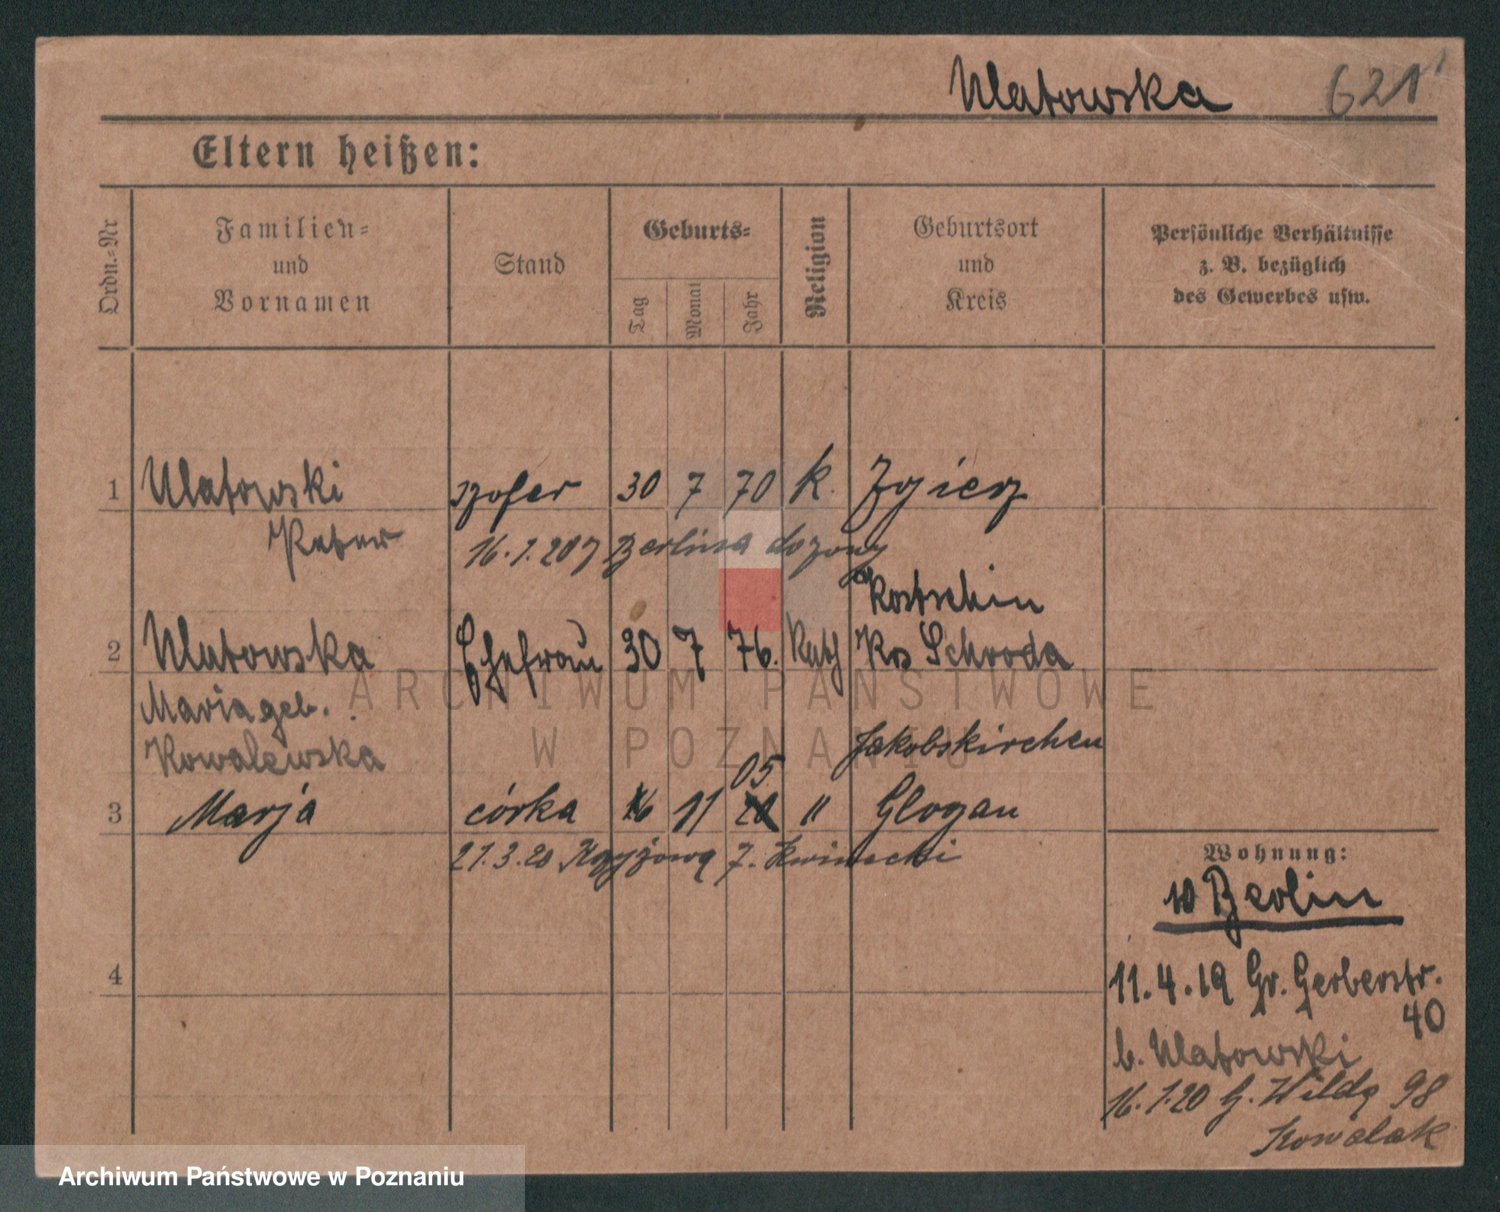 Ulatowska 621
Eltern heißen:
Ordn.-Nr
Familien-
und
Vornamen
Stand
Geburts-
Tag
Monat
Jahr
Religion
Geburtsort
und
Kreis
Persönliche Verhältnisse
z. B. bezüglich
des Gewerbes usw.
1 Ulatowski szofer 30 7 70 k.
Peter
16.1.20 z Berlina do żony
Kostschin
2 Ulatowska Ehefrau 30 7 76. Kath Krs Schroda
Maria geb.
Kowalewska
Jakobskirchen
05
3 Marja córka 16 11 " Glogau
21.3.20 Krzyżowa 7. Kwinecki
Wohnung:
Berlin
4
11.4.19 Gr. Gerberstr.
40
b. Ulatowski
16.1.20 G. Wilda 98
Kowalak
ARCHIWUM PAŃSTWOWE
W POZNANIU
Archiwum Państwowe w Poznaniu